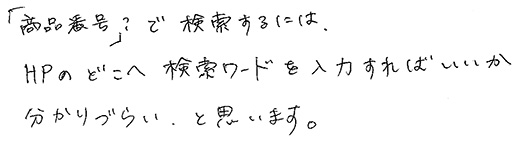 「商品番号」?で検索するには、
HPのどこへ検索ワードを入力すればいいか
分かりづらい、と思います。